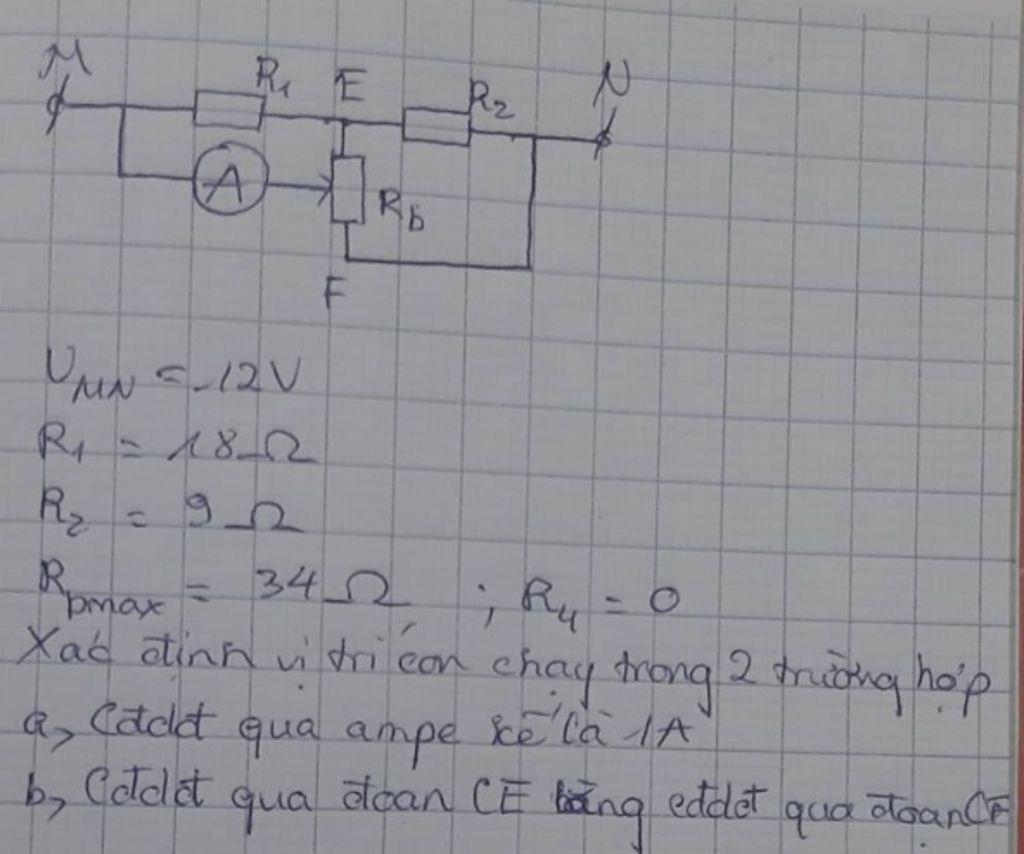 M R₁ E R₂ N
A R_b
F
U_MN = 12V
R₁ = 18Ω
R₂ = 9Ω
R_bmax = 34Ω ; R_A = 0
Xác định vị trí con chạy trong 2 trường hợp
a, Cđdđ qua ampe kế là 1A
b, Cđdđ qua đoạn CE bằng cđdđ qua đoạn CF